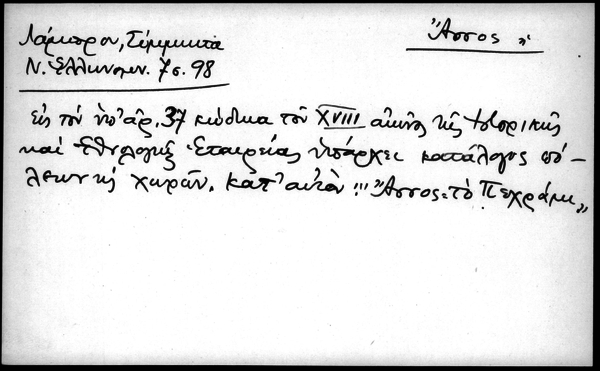 Λάμπρου, Σύμμικτα
Ν. Ἑλληνομν. 7 σ. 98
"Ἄσσος"
εἰς τὸν ὑπ' ἀρ. 37 κώδικα τοῦ XVIII αἰῶνος τῆς Ἱστορικῆς
καὶ Ἐθνολογικῆς Ἑταιρείας ὑπάρχει κατάλογος πό-
λεων καὶ χωρῶν. Κατ' αὐτὸν !!! "Ἄσσος = τὸ Πεχράμι"